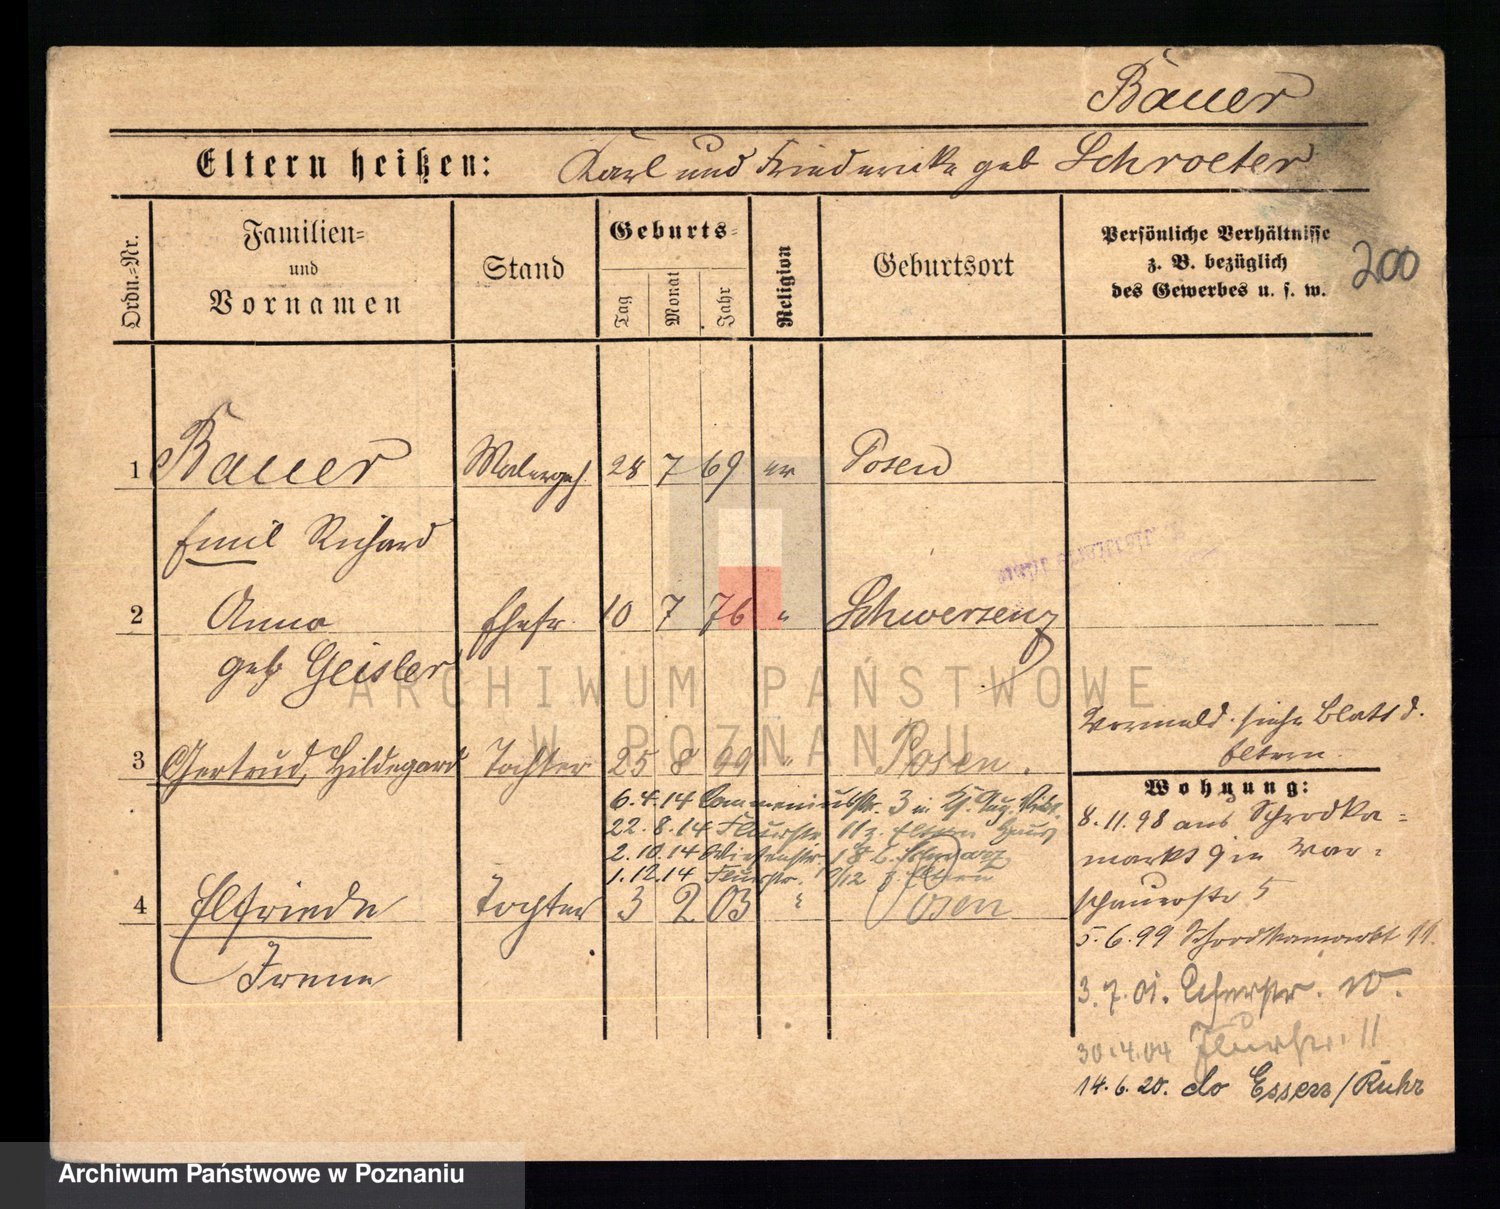 Bauer
Eltern heißen: Karl und Friedericke geb Schroeter
Ordn.-Nr.
Familien-
und
Vornamen
Stand
Geburts-
Tag
Monat
Jahr
Religion
Geburtsort
Persönliche Verhältnisse
z. B. bezüglich
des Gewerbes u. s. w.
200
1 Bauer Malergeh. 28 7 69 ev Posen
Emil Richard
2 Anna Ehefr. 10 7 76 " Schwersenz
geb Geisler
ARCHIWUM PAŃSTWOWE
W POZNANIU
3 Gertrud, Hildegard Tochter 25 8 99 " Posen.
siehe Blatt d.
Eltern.
Wohnung:
6.4.14 Commeniusstr. 3
22.8.14 Flurstr. 11 z. Eltern
2.10.14 Wiesenstr. 18
1.12.14 Flurstr. z. Eltern
4 Elfriede Tochter 3 2 03 " Posen
Irene
8.11.98 aus Schrodka-
markt 9 in War-
schauerstr 5
5.6.99 Schrodkamarkt 11.
3.7.01. 10.
30.4.04 Flurstr. 11
14.6.20. do Essen/Ruhr
Archiwum Państwowe w Poznaniu